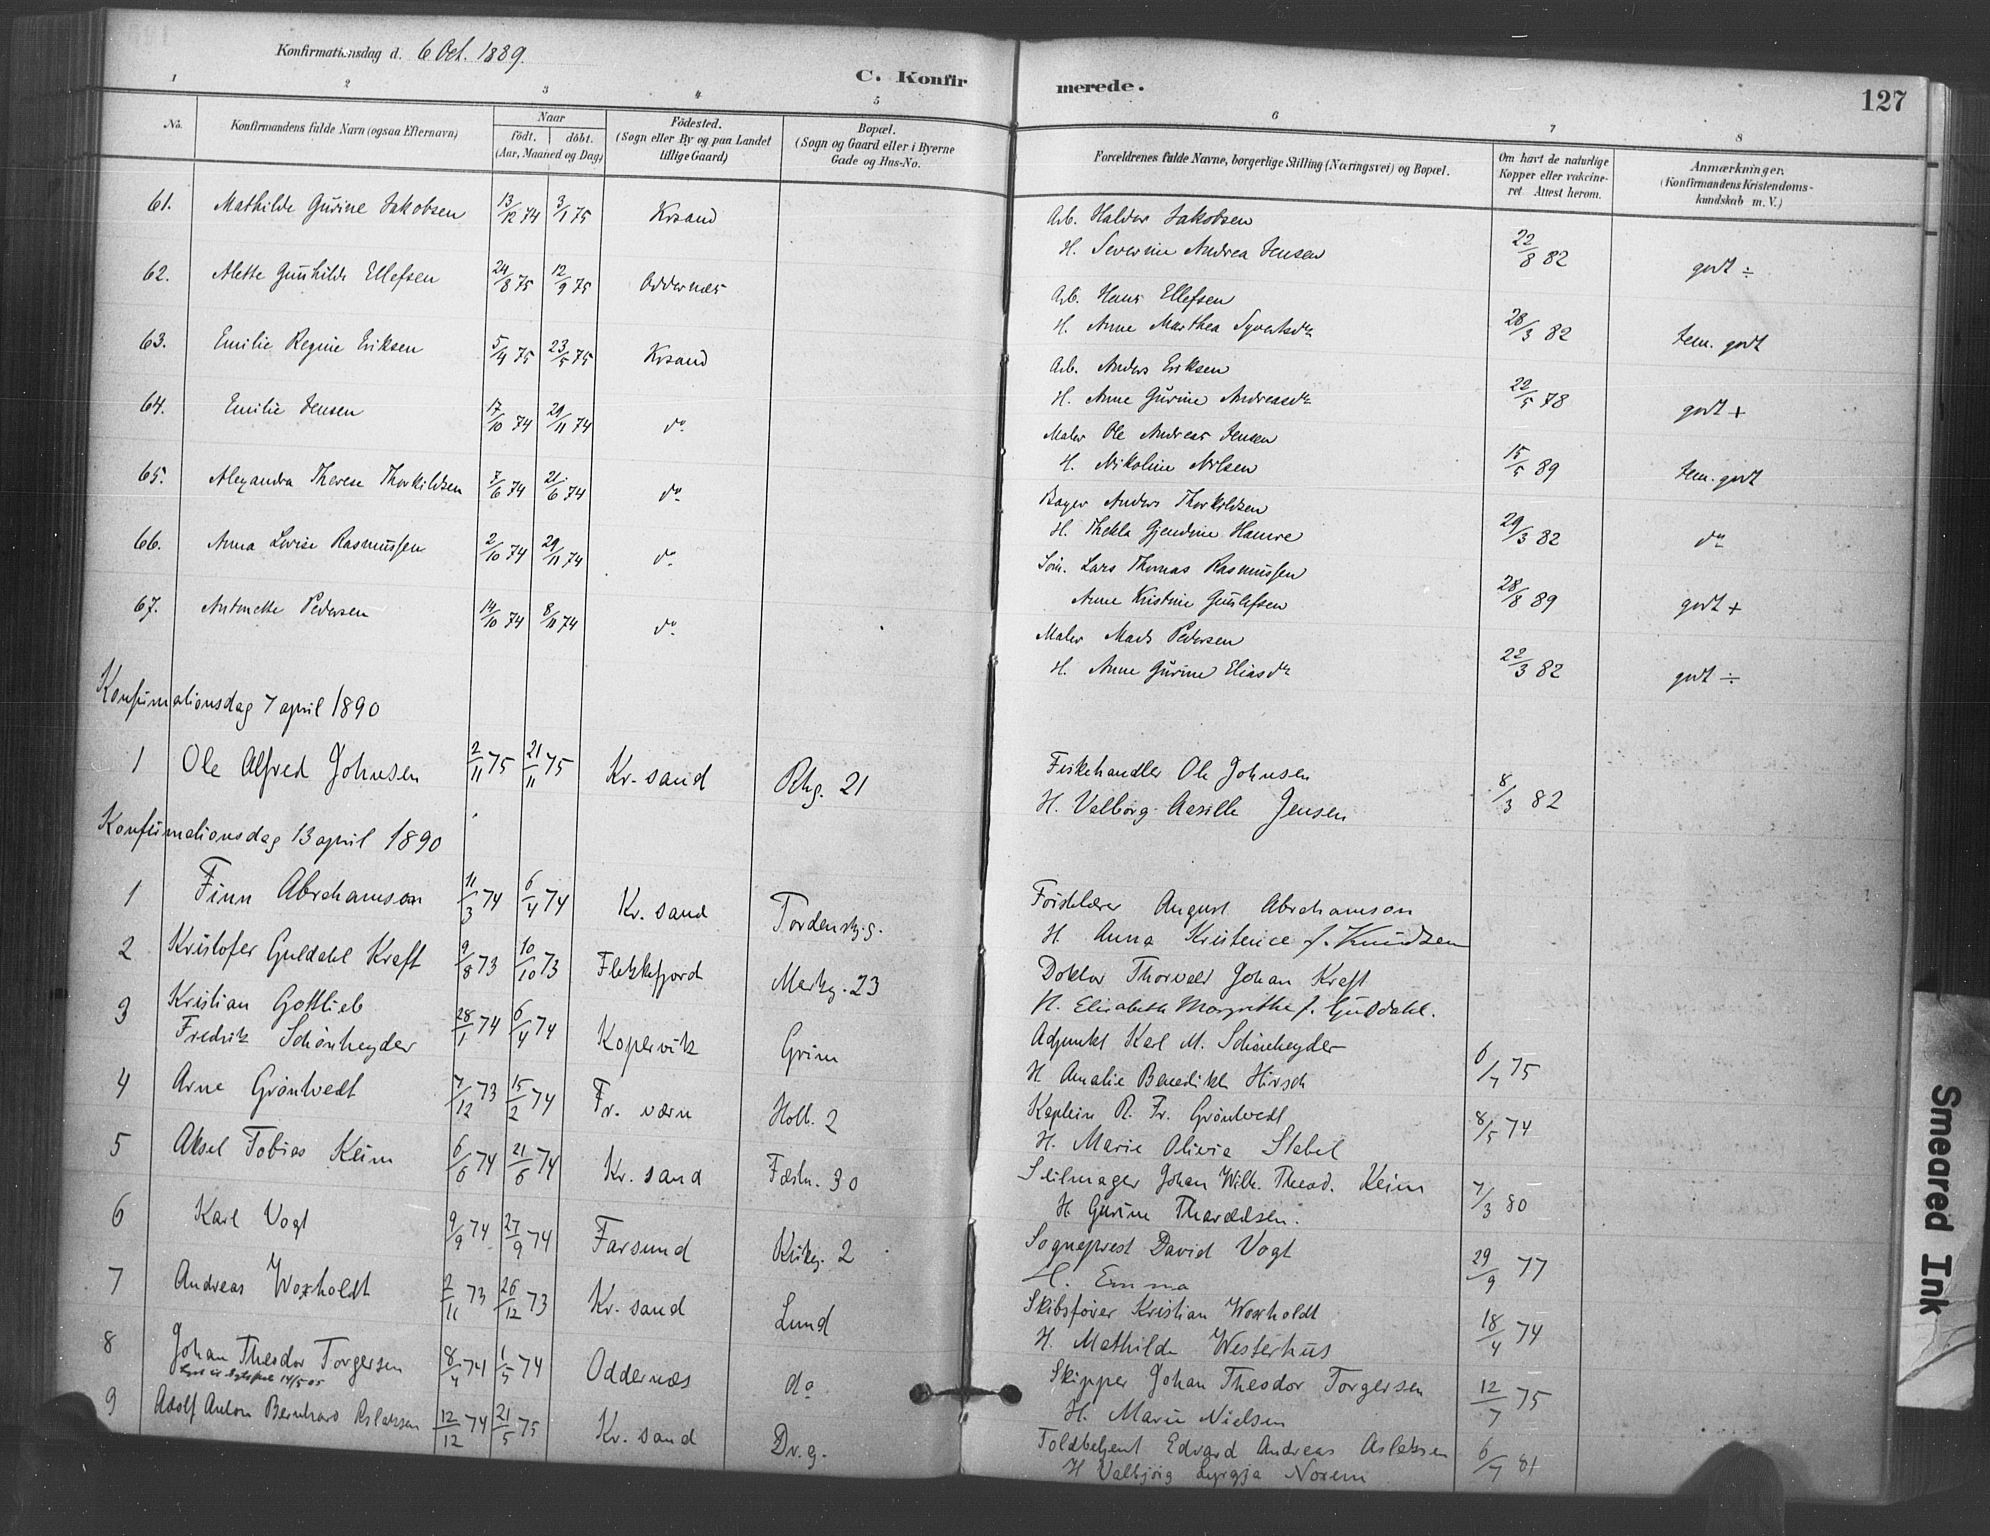 Konfirmationsdag d. 6 Oct. 1889.
C. Konfirmerede.
127
1 2 3 4 5 6 7 8
No.
Konfirmandens fulde Navn (ogsaa Efternavn)
Naar
født. døbt.
(Aar, Maaned og Dag)
Fødested.
(Sogn eller By og paa Landet
tillige Gaard)
Bopæl.
(Sogn og Gaard eller i Byerne
Gade og Hus-No.
Forældrenes fulde Navne, borgerlige Stilling (Næringsvei) og Bopæl.
Om havt de naturlige
Kopper eller vakcine-
ret. Attest herom.
Anmærkninger.
(Konfirmandens Kristendoms-
kundskab m. V.)
61. Mathilde Gurine Jakobsen 13/12 74 3/1 75 Krsand Arb. Haldor Jakobsen
H. Severine Andrea Jensen 22/8 82 godt ÷
62. Alette Gunhilde Ellefsen 24/8 75 12/9 75 Oddernæs Arb. Hans Ellefsen
H. Anne Marthea Syvertsdr 28/3 82 tem. godt
63. Emilie Regine Eriksen 5/4 75 23/5 75 Krsand Arb. Anders Eriksen
H. Anne Gurine Andreasdr 22/5 78 godt +
64. Emilie Jensen 17/10 74 29/11 74 do Maler Ole Andreas Jensen
H. Nikoline Nilsen 15/5 89 tem. godt
65. Alexandra Therese Thorkildsen 7/6 74 21/6 74 do Bager Anders Thorkildsen
H. Thekla Gjendine Hamre 29/3 82 do
66. Anna Lovise Rasmussen 2/10 74 29/11 74 do Søm. Lars Thomas Rasmussen
Anne Kristine Gunlefsen 28/8 89 godt +
67. Antonette Pedersen 14/10 74 8/11 74 do Maler Mads Pedersen
H. Anne Gurine Eliasdr 22/3 82 godt ÷
Konfirmationsdag 7 april 1890
1 Ole Alfred Johnsen 2/11 75 21/11 75 Kr.sand Rhg. 21 Fiskehandler Ole Johnsen
H. Valborg Aasille Jensen 8/3 82
Konfirmationsdag 13 april 1890
1 Finn Abrahamson 11/3 74 6/4 74 Kr.sand Tordenskj.g. August Abrahamson
H. Anna Kristence f. Knudsen
2 Kristofer Guldahl Kraft 9/8 73 10/10 73 Flekkefjord Markg. 23 Doktor Thorvald Johan Kraft
H. Elisabeth Margrethe f. Guldahl.
3 Kristian Gottlieb
Fredrik Schønheyder 28/1 74 6/4 74 Kopervik Grim Adjunkt Karl M. Schønheyder
H Amalie Benedikte Hirsch 6/7 75
4 Arne Grøntvedt 7/12 73 15/2 74 Fr. værn Holb. 2 Kaptein R. Fr. Grøntvedt
H. Marie Olivia Stabel 8/5 74
5 Aksel Tobias Keim 6/6 74 21/6 74 Kr.sand Fæstn. 30 Seilmager Johan Wilh. Theod. Keim
H Gurine Tharaldsen. 7/3 80
6 Karl Vogt 9/9 74 27/9 74 Farsund Kirkeg. 2 Sogneprest David Vogt
H. Emma 29/9 77
7 Andreas Woxholdt 2/11 73 26/12 73 Kr.sand Lund Skibsfører Kristian Woxholdt
H. Mathilde Westerhus 18/4 74
8 Johan Theodor Torgersen 8/4 74 1/5 74 Oddernæs do Skipper Johan Theodor Torgersen
14/5 05
H. Marie Nielsen 12/7 75
9 Adolf Anton Bernhard Aslaksen 12/12 74 21/5 75 Kr.sand Dr.g. Toldbetjent Edvard Andreas Aslaksen
H Valbjörg Norem 6/7 81
Smeared Ink